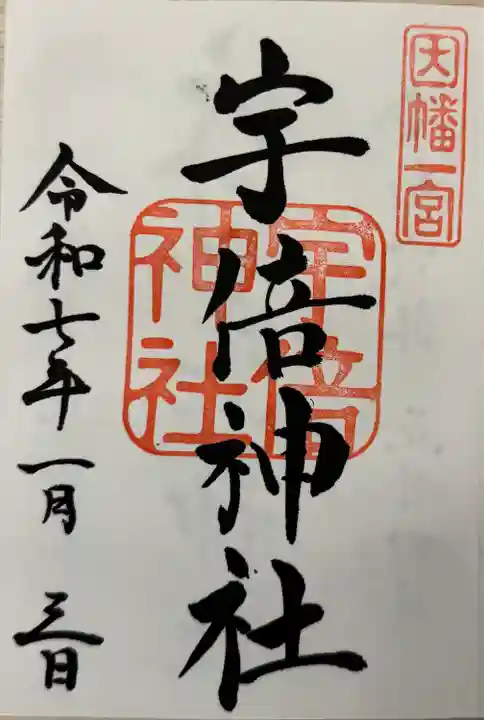 因幡一宮
宇倍神社
宇倍
神社
令和七年一月三日